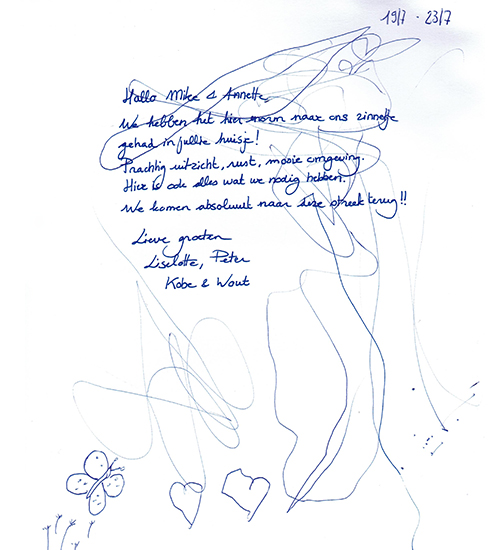 19/7 - 23/7
Hallo Mike & Annette,
We hebben het hier enorm naar ons zinnetje
gehad in jullie huisje!
Prachtig uitzicht, rust, mooie omgeving.
Hier is ook alles wat we nodig hebben.
We komen absoluut naar deze streek terug!!
Lieve groeten
Liselotte, Peter
Kobe & Wout